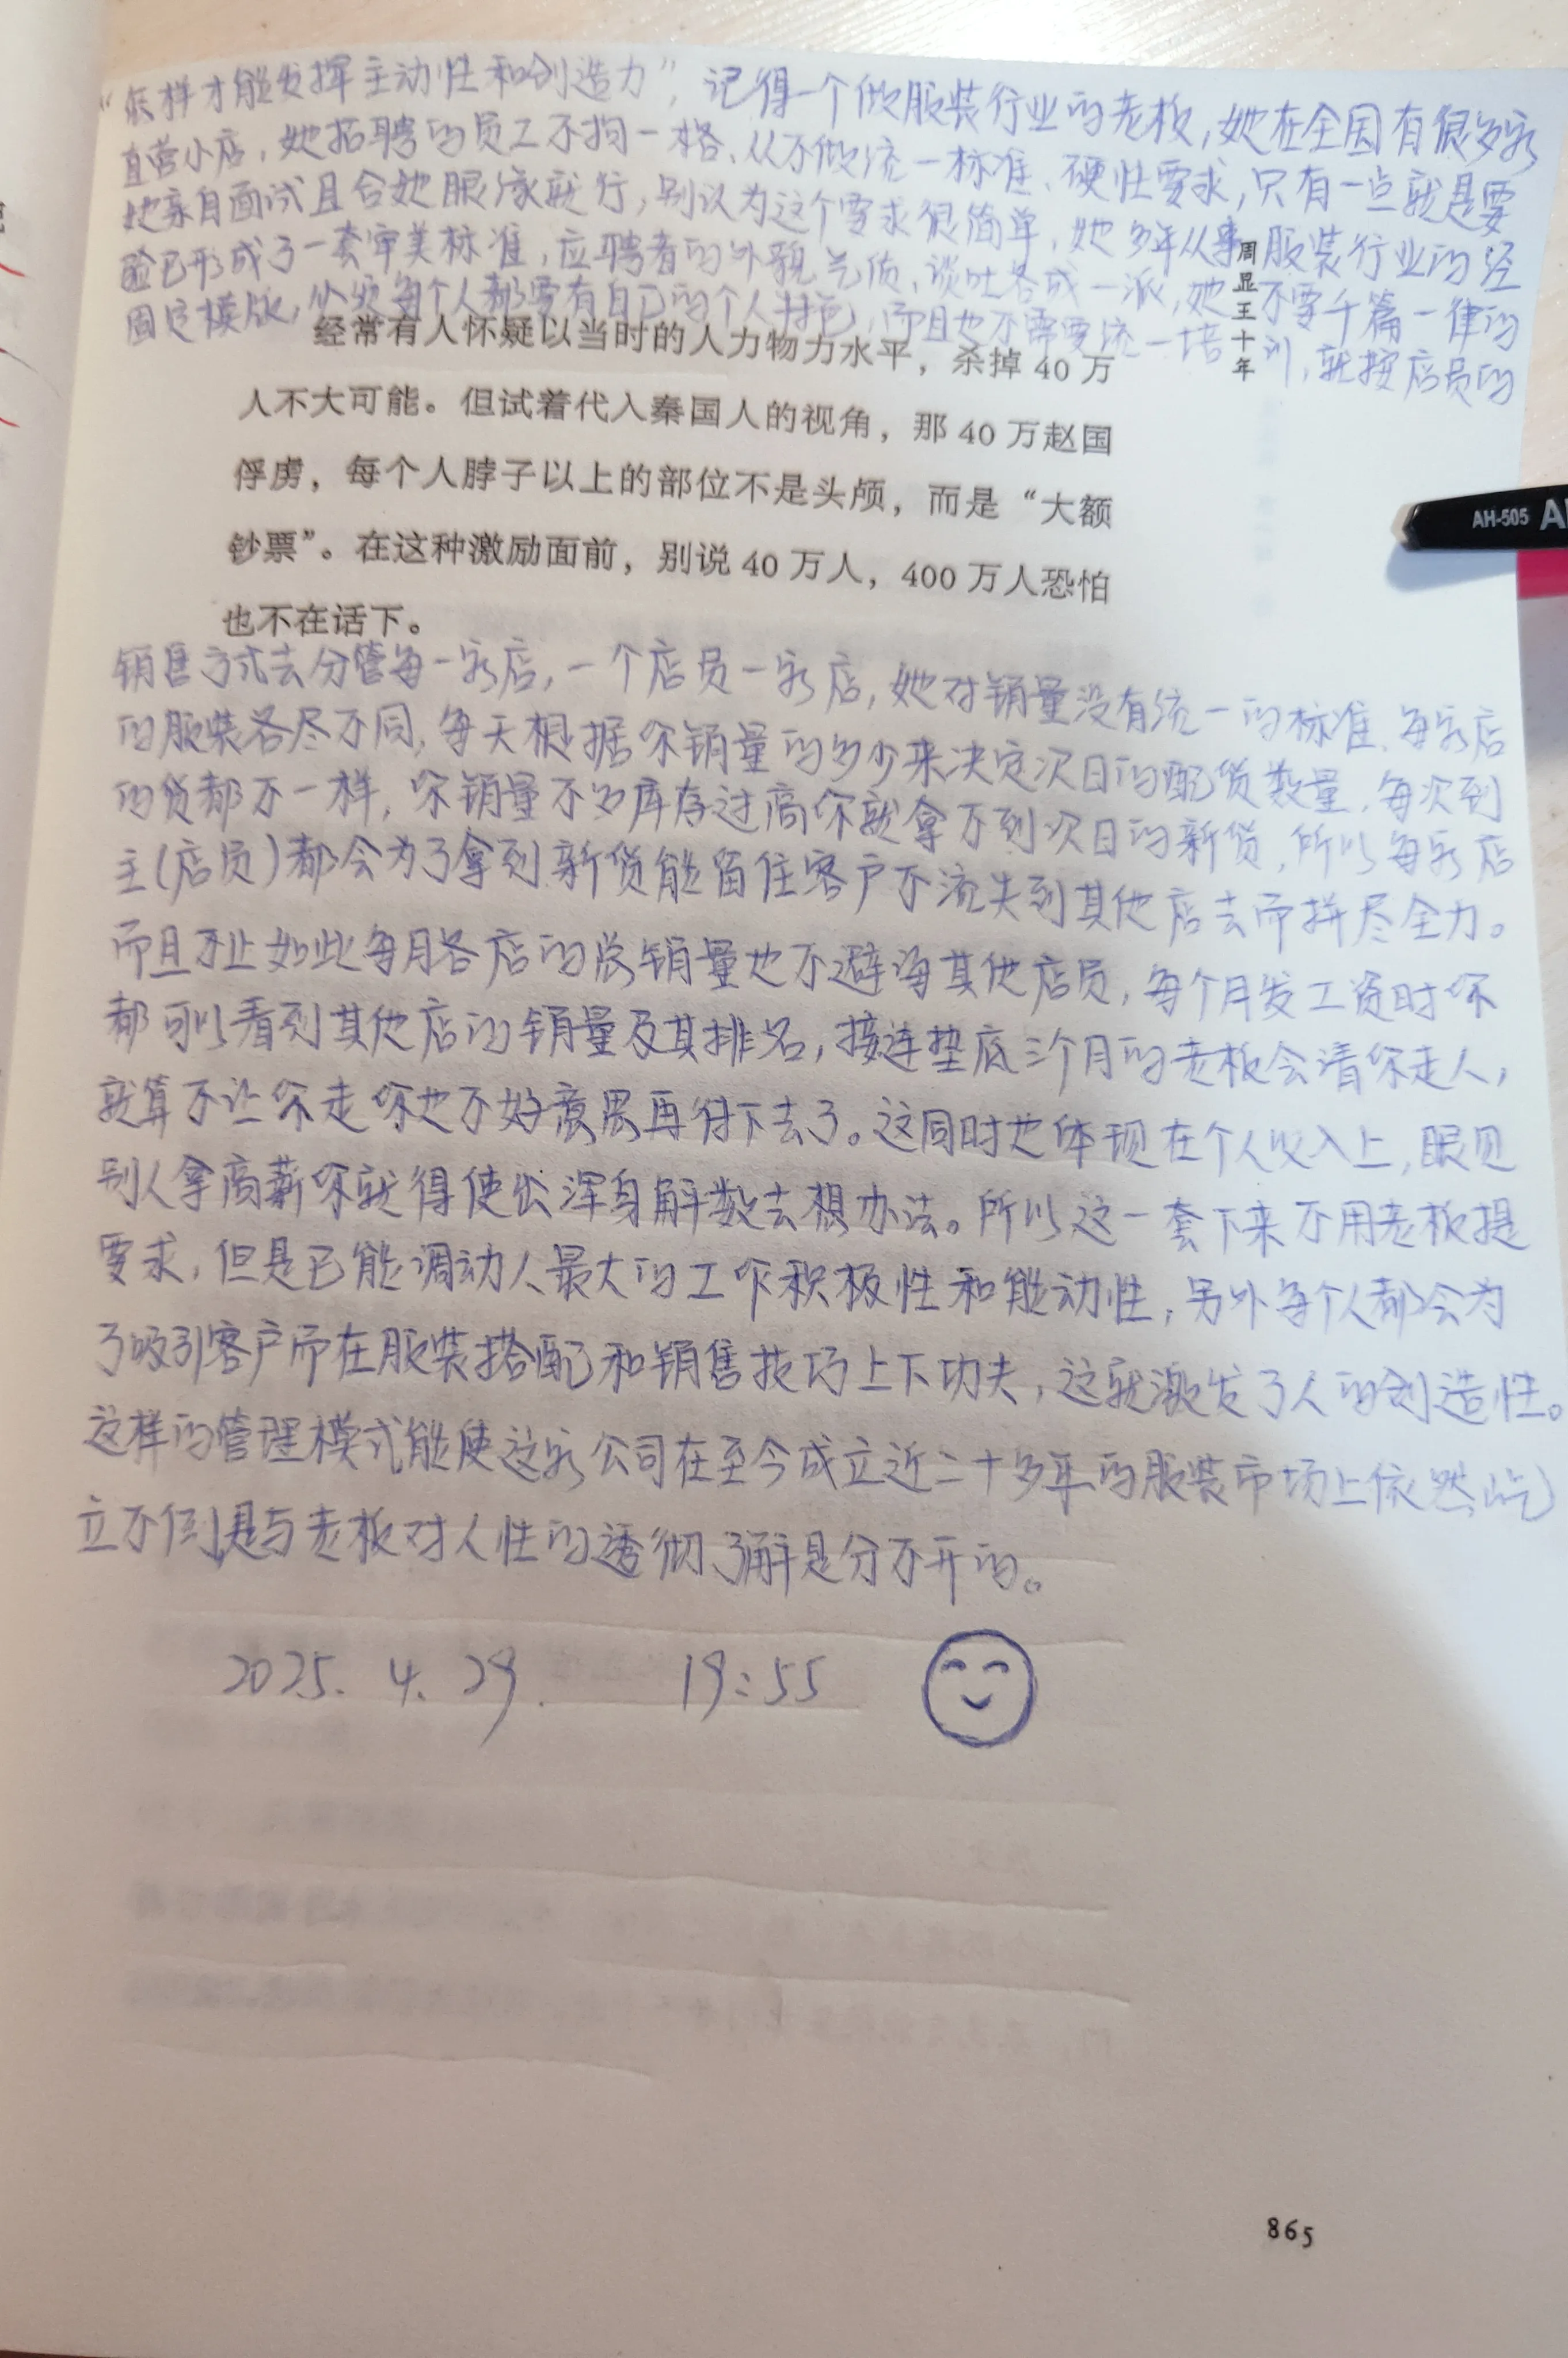 “怎样才能发挥主动性和创造力”，记得一个做服装行业的老板，她在全国有很多家
直营小店，她招聘的员工不拘一格、从不做统一标准、硬性要求，只有一点就是要
她亲自面试且合她眼缘就行，别认为这个要求很简单，她多年从事服装行业的经
验已形成了一套审美标准，应聘者的外貌气质、谈吐各成一派，她不要千篇一律的
固定模版，必须每个人都要有自己的个人特色，而且也不需要统一培训，就按店员的
周显王十年
经常有人怀疑以当时的人力物力水平，杀掉 40 万
人不大可能。但试着代入秦国人的视角，那 40 万赵国
俘虏，每个人脖子以上的部位不是头颅，而是“大额
钞票”。在这种激励面前，别说 40 万人，400 万人恐怕
也不在话下。
AH-505
销售方式去分管每一家店，一个店员一家店，她对销量没有统一的标准、每家店
的服装各尽不同，每天根据你销量的多少来决定次日的配货数量，每次到
的货都不一样，你销量不多库存过高你就拿不到次日的新货，所以每家店
主(店员)都会为了拿到新货能留住客户不流失到其他店去而拼尽全力。
而且不止如此每月各店的总销量也不避诲其他店员，每个月发工资时你
都可以看到其他店的销量及其排名，接连垫底三个月的老板会请你走人，
就算不让你走你也不好意思再待下去了。这同时也体现在个人收入上，眼见
别人拿高薪你就得使出浑身解数去想办法。所以这一套下来不用老板提
要求，但是已能调动人最大的工作积极性和能动性，另外每个人都会为
了吸引客户而在服装搭配和销售技巧上下功夫，这就激发了人的创造性。
这样的管理模式能使这家公司在至今成立近二十多年的服装市场上依然屹
立不倒是与老板对人性的透彻了解是分不开的。
2025. 4. 29. 19:55
865